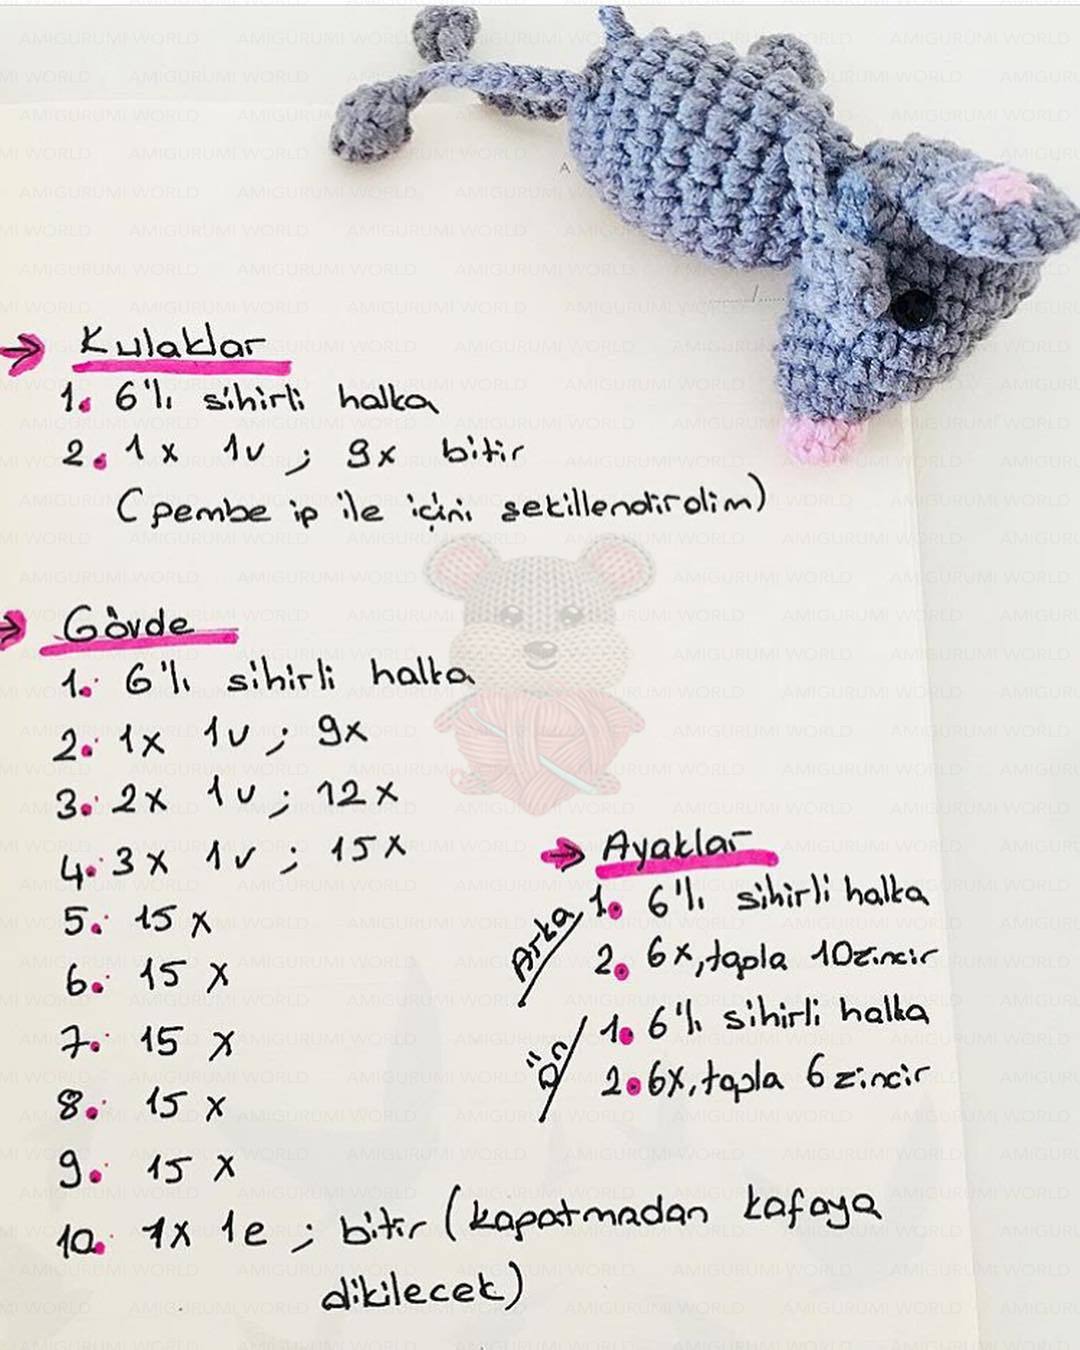 Kulaklar
1. 6'lı sihirli halka
2. 1x 1v ; 9x bitir
(pembe ip ile içini şekillendirelim)
Gövde
1. 6'lı sihirli halka
2. 1x 1v ; 9x
3. 2x 1v ; 12x
4. 3x 1v ; 15x
5. 15x
6. 15x
7. 15x
8. 15x
9. 15x
10. 1x 1e ; bitir (kapatmadan kafaya
dikilecek)
Ayaklar
Arka
1. 6'lı sihirli halka
2. 6x, topla 10zincir
Ön
1. 6'lı sihirli halka
2. 6x, topla 6 zincir
AMIGURUMI WORLD